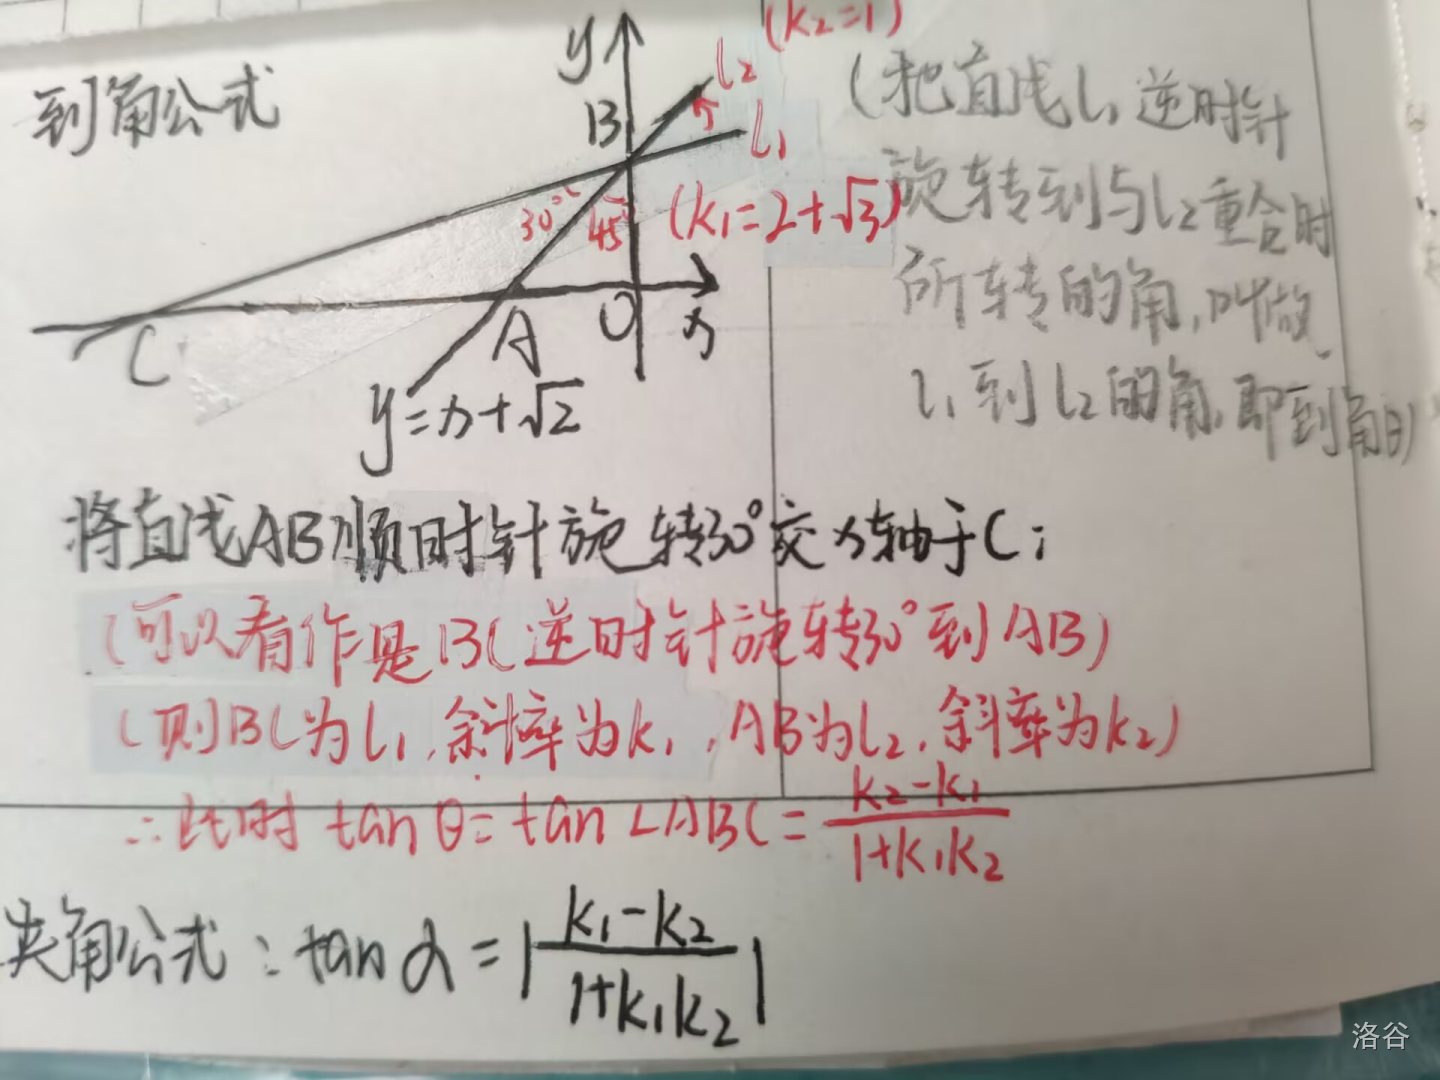 到角公式
(k₂=1)
y
l₂
B
l₁
30°
45°
(k₁=2+√3)
C
A
O
x
y=x+√2
(把直线l₁逆时针
旋转到与l₂重合时
所转的角,叫做
l₁到l₂的角,即到角θ)
将直线AB顺时针旋转30°交x轴于C;
(可以看作是BC逆时针旋转30°到AB)
(则BC为l₁,斜率为k₁,AB为l₂,斜率为k₂)
∴此时 tanθ=tan∠ABC=\frac{k₂-k₁}{1+k₁k₂}
夹角公式:tanα=|\frac{k₁-k₂}{1+k₁k₂}|
洛谷